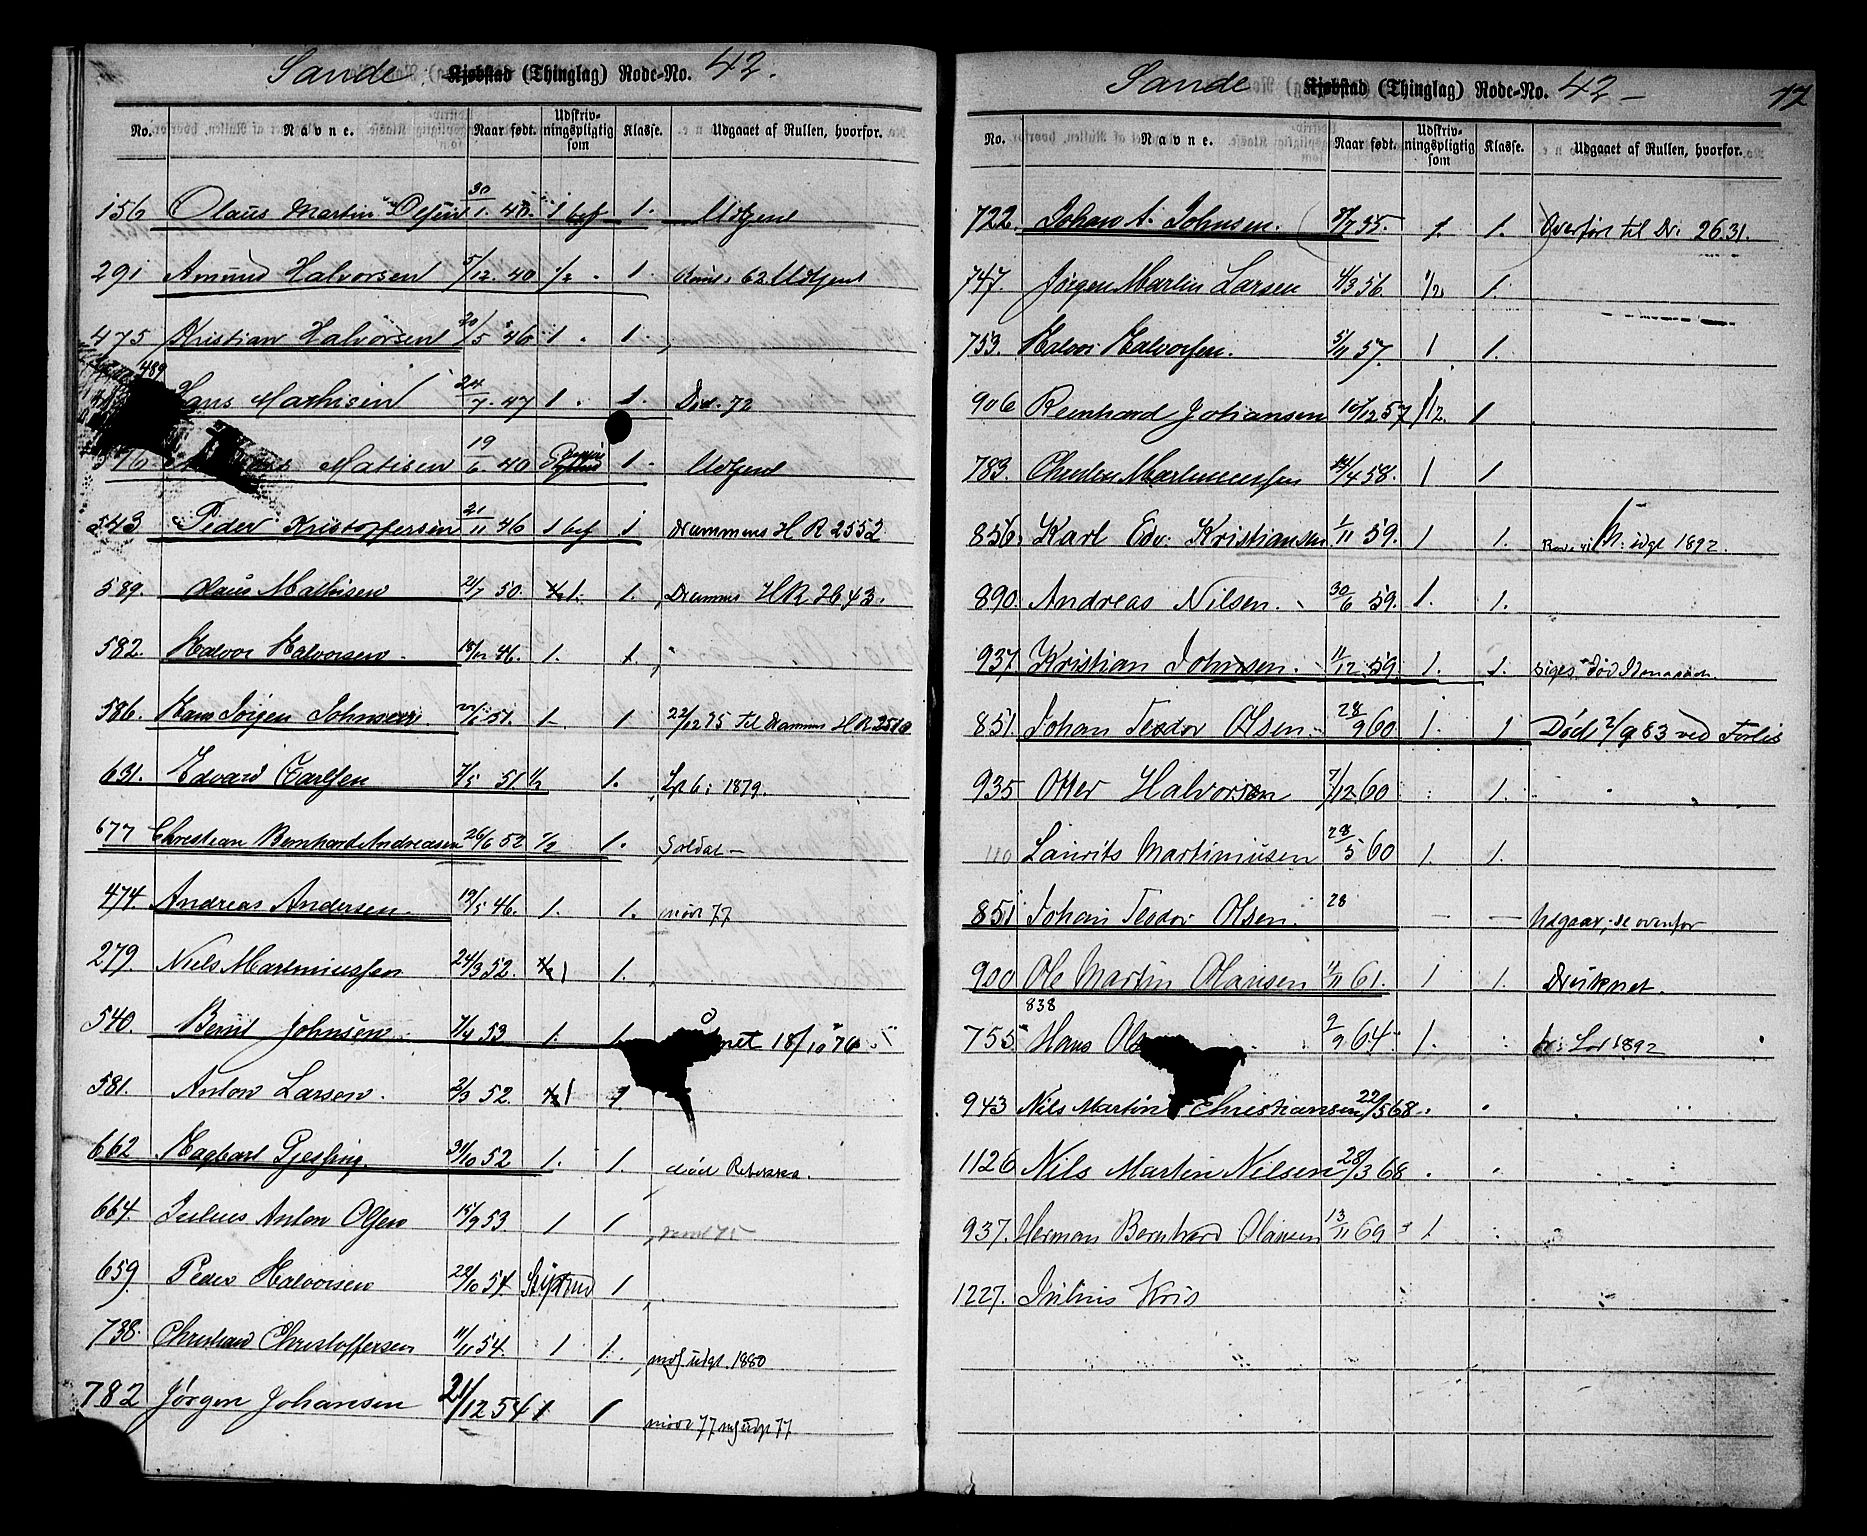 Sande Kjøbstad (Thinglag) Rode-No. 42.
No. Navne. Naar født. Udskrivningspligtig som Klasse. Udgaaet af Rullen, hvorfor.
156 Olaus Martin 30/1. 40. 1 bef 1. Udtjent
291 Amund Halvorsen 5/12. 40 1/2 1. 62 Udtjent
475 Kristian Halvorsen 20/5 46 1 1.
489 Hans Mathisen 24/7. 47 1 1. Død. 72
Matisen 19/6 40 1. Udtjent
543 Peder Kristoffersen 21/11 46 1 bef 1 Drammens H R 2552
589. Olaus Mathisen 21/7 50. 1. 1. Drammens H R 2643.
582. Halvor Halvorsen 18/12 46. 1. 1.
586. Hans Jörgen Johnsen 22/6 51. 1. 1 22/12 75 til Drammens H R 2510
631. Edvard Carlsen 7/5 51. 1/2 1. 1879.
677 Christian Bernhard Andreasen 26/6 52 1/2 1. Soldat
474. Andreas Andersen 19/5 46. 1. 1. 77
279. Niels Martiniussen 24/3 52. 1 1.
540. Bernt Johnsen 7/4 53 1. 1. 18/10 76
581. Anton Larsen. 2/3 52. 1 1.
662 Hagbart Gjessing. 31/10 52 1. 1.
664. Julius Anton Olsen 15/9 53 1 1 75
659. Peder Halvorsen 22/10 54. 1
738. Christian Christoffersen 11/11 54. 1 1. udgt. 1880
782 Jørgen Johansen 21/12 54 1 1 77
Sande Kjøbstad (Thinglag) Rode-No. 42 77
No. Navne. Naar født. Udskrivningspligtig som Klasse. Udgaaet af Rullen, hvorfor.
722. Johan A. Johnsen. 55. 1. 1. Overført til Dr. 2631.
747. Jørgen Martin Larsen 4/3 56. 1/2 1.
753. Halvor Halvorsen. 5/11 57. 1 1.
906 Reinhard Johansen 10/12 57 1/2. 1
783. Martiniussen 14/4 58. 1 1
856. Karl Edv. Kristiansen 1/11 59. 1 1. udgt 1892.
890. Andreas Nilsen. 30/6 59. 1. 1.
937. Kristian Johnsen. 11/12 59. 1. 1. siges død
851. Johan Teodor Olsen. 28/9 60 1. 1 Død 2/9 83 ved Forlis
935 Otter Halvorsen 7/12 60 1.
Laurits Martiniusen 28/5 60 1. 1.
851 Johan Teodor Olsen. 28 — — Udgaar, se ovenfor
900 Ole Martin Olausen 11/11 61. 1 1. Druknet.
838
755 Hans Ols 2/9 64. 1. 1892
943 Nils Martin Christiansen 22/5 68.
1126 Nils Martin Nilsen 28/3 68.
937. Herman Bernhard Olausen 13/11 69 1
1227. Julius Kris